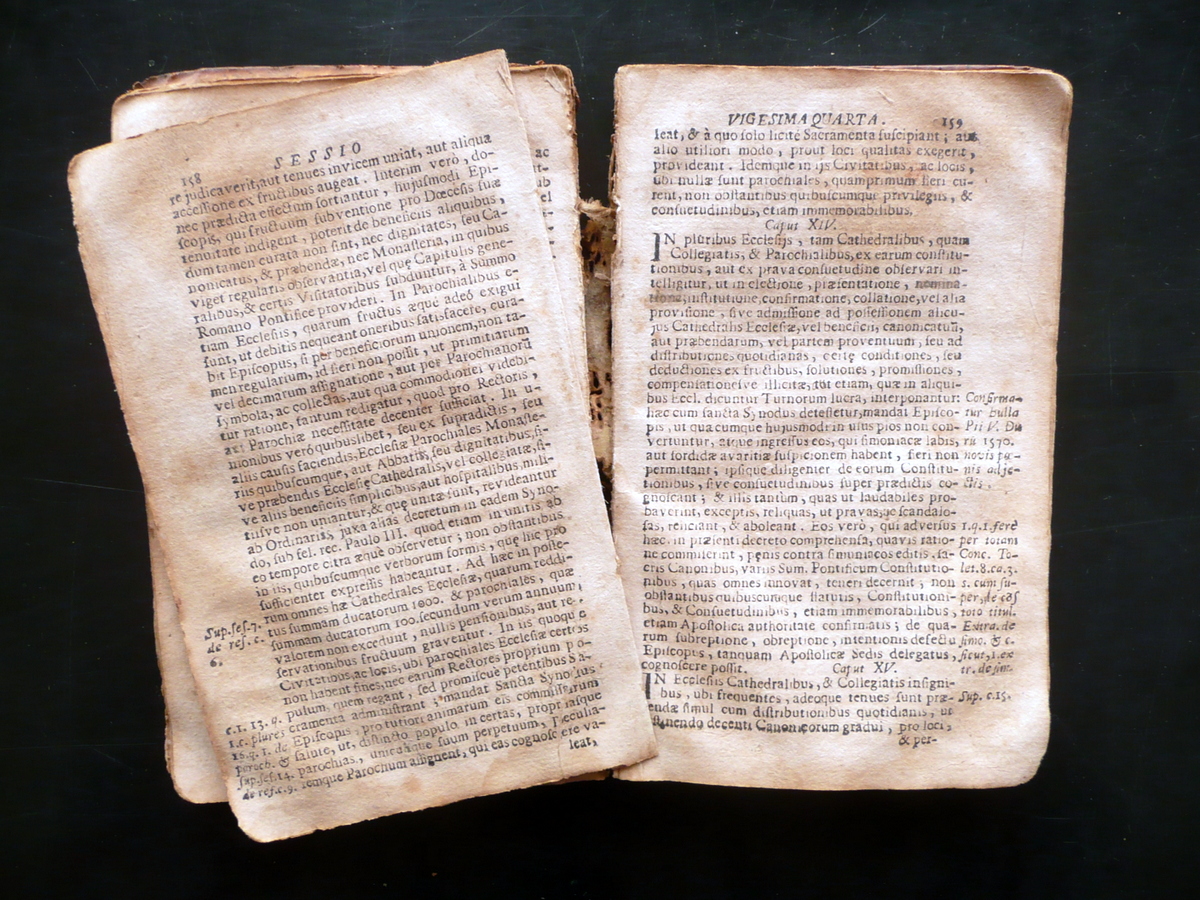 158
SESSIO
re judicaverit, aut tenues invicem uniat, aut aliqua
accessione ex fructibus augeat. Interim verò, do-
nec prædicta effectum sortiantur, hujusmodi Epi-
scopis, qui fructuum subventione pro Diœcesis suæ
tenuitate indigent, poterit de beneficiis aliquibus,
dum tamen curata non sint, nec dignitates, seu Ca-
nonicatus, & præbendæ, nec Monasteria, in quibus
viget regularis observantia, vel quę Capitulis gene-
ralibus, & certis Visitatoribus subduntur, à Summo
Romano Pontifice provideri. In Parochialibus e-
tiam Ecclesiis, quarum fructus æque adeò exigui
sunt, ut debitis nequeant oneribus satisfacere, cura-
bit Episcopus, si per beneficiorum unionem, non ta-
men regularium, id fieri non possit, ut primitiarum
vel decimarum assignatione, aut per Parochianorũ
symbola, ac collectas, aut qua commodiori videbi-
tur ratione, tantum redigatur, quod pro Rectoris,
ac Parochiæ necessitate decenter sufficiat. In u-
nionibus verò quibuslibet, seu ex supradictis, seu
aliis causis faciendis, Ecclesiæ Parochiales Monaste-
riis quibuscumque, aut Abbatiis, seu dignitatibus, si-
ve præbendis Ecclesię Cathedralis, vel collegiatæ, si-
ve aliis beneficiis simplicibus, aut hospitalibus, mili-
tiisve non uniantur, & quę unitæ sunt, revideantur
ab Ordinariis, juxa aliàs decretum in eadem Syno-
do, sub fel. rec. Paulo III. quod etiam in unitis ab
eo tempore citra æque observetur; non obstantibus
in iis, quibuscumque verborum formis, quę hîc pro
sufficienter expressis habeantur. Ad hæc in poste-
rum omnes hæ Cathedrales Ecclesiæ, quarum reddi-
tus summam ducatorum 1000. & parochiales, quæ
summam ducatorum 100. secundum verum annuum
valorem non excedunt, nullis pensionibus, aut re-
servationibus fructuum graventur. In iis quoque
Civitatibus, ac locis, ubi parochiales Ecclesiæ certos
non habent fines, nec earum Rectores proprium po-
pulum, quem regant, sed promiscue petentibus Sa-
cramenta administrant; mandat Sancta Synodus
Episcopis, pro tutiori animarum eis commissarum
salute, ut, distincto populo in certas, propriasque
parochias, unicuique suum perpetuum, peculia-
remque Parochum assignent, qui eas cognoscere va-
leat,
Sup. ses. 7.
de ref. c.
6.
c. 1. 13. q.
1. c. plures
16. q. 1. de
paroch. &
sup. ses. 14.
de ref. c. 9.
ac
ub
el
VIGESIMA QUARTA.
159
leat, & à quo solo licitè Sacramenta suscipiant; aut
alio utiliori modo, prout loci qualitas exegerit,
provideant. Idemque in ijs Civitatibus, ac locis,
ubi nullæ sunt parochiales, quamprimum fieri cu-
rent, non obstantibus quibuscumque privilegiis, &
consuetudinibus, etiam immemorabilibus.
Caput XIV.
IN pluribus Ecclesijs, tam Cathedralibus, quam
Collegiatis, & Parochialibus, ex earum constitu-
tionibus, aut ex prava consuetudine observari in-
telligitur, ut in electione, præsentatione, nomina-
tione, institutione, confirmatione, collatione, vel alia
provisione, sive admissione ad possessionem alicu-
jus Cathedralis Ecclesiæ, vel beneficii, canonicatuũ,
aut præbendarum, vel partem proventuum, seu ad
distributiones quotidianas, certę conditiones, seu
deductiones ex fructibus, solutiones, promissiones,
compensationesve illicitæ, aut etiam, quæ in aliqui-
bus Eccl. dicuntur Turnorum lucra, interponantur:
hæc cum sancta Synodus detestetur, mandat Episco-
pis, ut quæcumque hujusmodi in usus pios non con-
vertuntur, atque ingressus eos, qui simoniacæ labis,
aut sordidæ avaritiæ suspicionem habent, fieri non
permittant; ipsique diligenter de eorum Constitu-
tionibus, sive consuetudinibus super prædictis co-
gnoscant; & illis tantum, quas ut laudabiles pro-
baverint, exceptis, reliquas, ut pravas, ac scandalo-
sas, rejiciant, & aboleant. Eos verò, qui adversus
hæc in præsenti decreto comprehensa, quavis ratio-
ne commiserint, pęnis contra simoniacos editis, sa-
cris Canonibus, variis Sum. Pontificum Constitutio-
nibus, quas omnes innovat, teneri decernit; non
obstantibus quibuscumque statutis, Constitutioni-
bus, & Consuetudinibus, etiam immemorabilibus,
etiam Apostolica authoritate confirmatis; de qua-
rum subreptione, obreptione, intentionis defectu
Episcopus, tanquam Apostolicæ Sedis delegatus,
cognoscere possit.
Caput XV.
IN Ecclesiis Cathedralibus, & Collegiatis insigni-
bus, ubi frequentes, adeoque tenues sunt præ-
bendæ simul cum distributionibus quotidianis, ut
sustinendo decenti Canonicorum gradui, pro loci,
& per-
Confirma-
tur bulla
Pii V. Da
tũ 1570.
novis pœ-
nis adje-
ctis.
1. q. 1. ferè
per totam
Conc. To-
let. 8. ca. 3.
s. cum su-
per, de cõf
toto titul.
Extra. de
simo. & c.
sicut, 1. ex
tr. de sim.
Sup. c. 15.